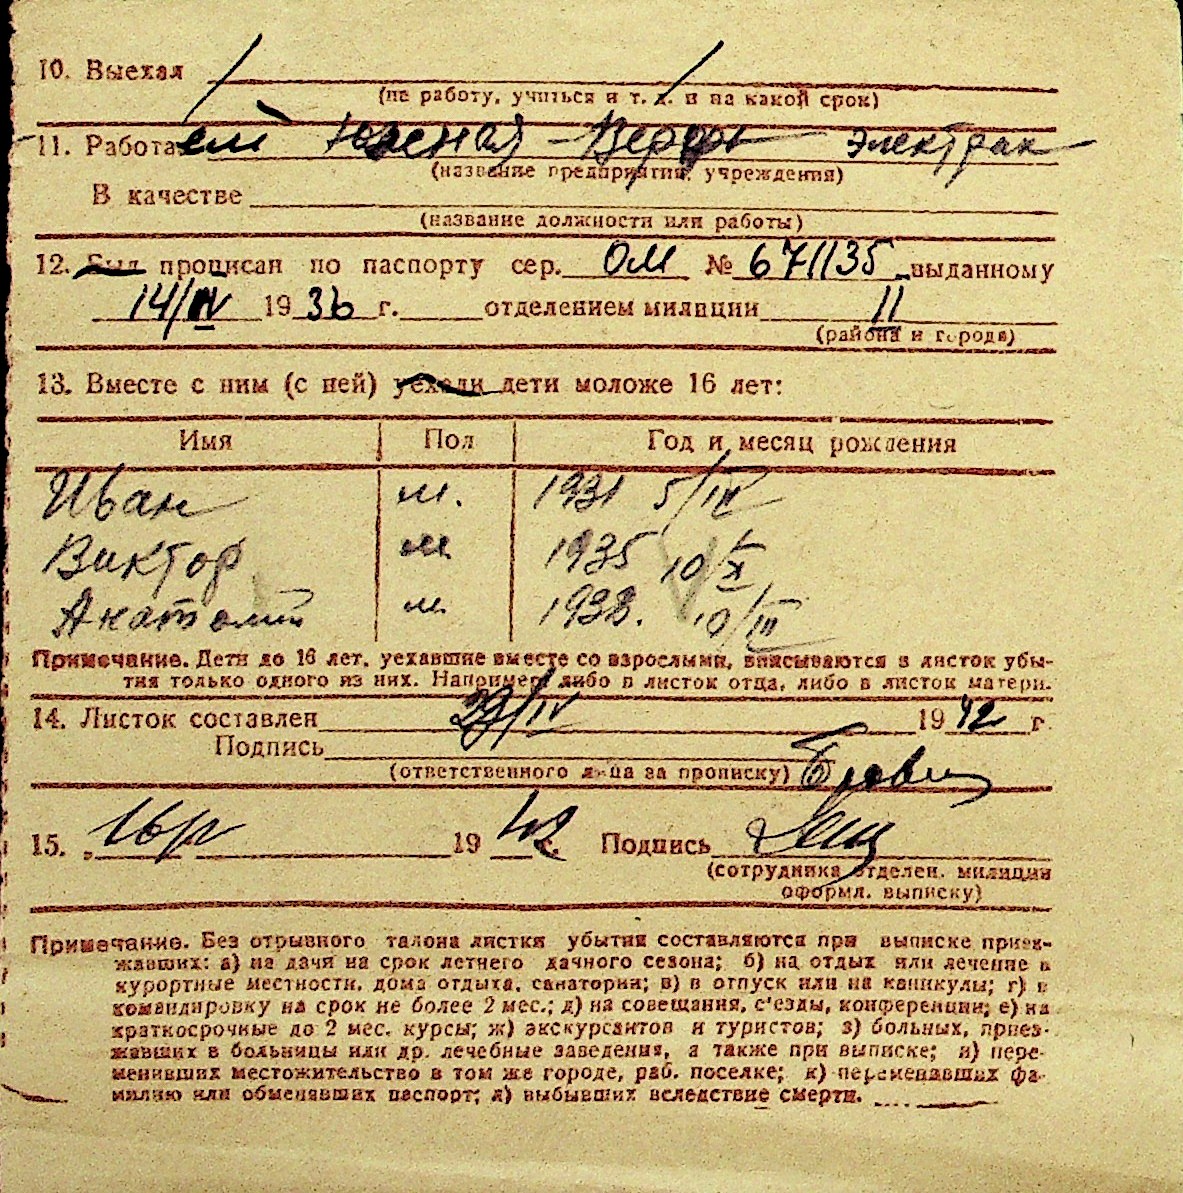 10. Выехал
(на работу, учиться и т. д. и на какой срок)
11. Работает Южная Верфь электрик
(название предприятий, учреждения)
В качестве
(название должности или работы)
12. Был прописан по паспорту сер. ОМ № 671135 выданному
14/IV 1936 г. отделением милиции 11
(района и города)
13. Вместе с ним (с ней) уехали дети моложе 16 лет:
Имя Пол Год и месяц рождения
Иван м. 1931 5/IX
Виктор м 1935 10/X
Анатолий м 1938. 10/III
Примечание. Дети до 16 лет, уехавшие вместе со взрослыми, вписываются в листок убы-
тия только одного из них. Например, либо в листок отца, либо в листок матери.
14. Листок составлен 29/IV 1942 г.
Подпись
(ответственного лица за прописку)
15. 1942 г. Подпись
(сотрудника отделен. милиции
оформл. выписку)
Примечание. Без отрывного талона листки убытия составляются при выписке приез-
жавших: а) на дачи на срок летнего дачного сезона; б) на отдых или лечение в
курортные местности, дома отдыха, санатории; в) в отпуск или на каникулы; г) в
командировку на срок не более 2 мес.; д) на совещания, с'езды, конференции; е) на
краткосрочные до 2 мес. курсы; ж) экскурсантов и туристов; з) больных, приез-
жавших в больницы или др. лечебные заведения, а также при выписке; и) пере-
менивших местожительство в том же городе, раб. поселке; к) переменавших фа-
милию или обменявших паспорт; л) выбывших вследствие смерти.